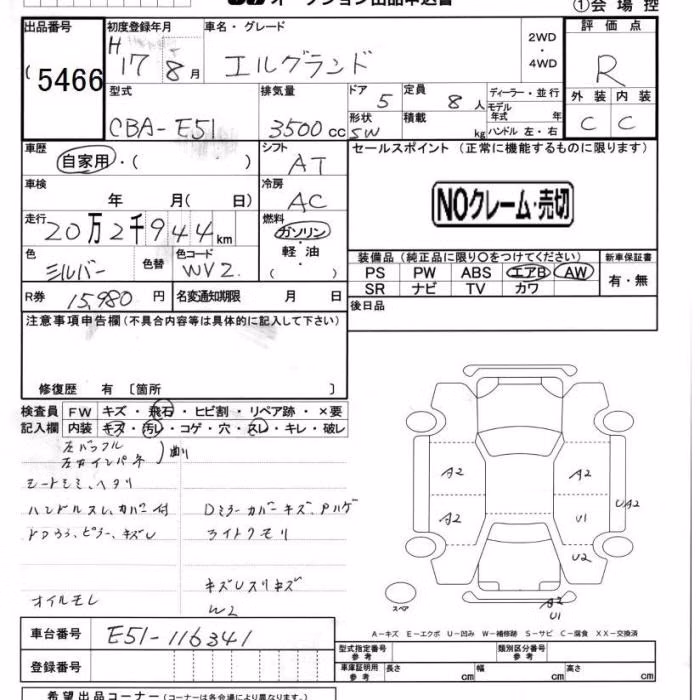 オークション出品申込書 ①会場控
出品番号 初度登録年月 車名・グレード 2WD・4WD 評価点
5466 H17 8月 エルグランド R
型式 排気量 ドア 定員 ディーラー・並行
CBA-E51 3500cc 5 8人 モデル年式 年式
形状 積載 ハンドル 左・右 外装 内装
SW kg C C
車歴 シフト セールスポイント (正常に機能するものに限ります)
自家用・( ) AT
車検 冷房
年 月( 日) AC NOクレーム・売切
走行 燃料
20万2千944km ガソリン・軽油( )
色 色替 色コード 装備品 (純正品に限り○をつけてください) 新車保証書
シルバー WV2 PS PW ABS エアB AW 有・無
SR ナビ TV カワ
R券 15,980円 名変通知期限 月 日 後日品
注意事項申告欄(不具合内容等は具体的に記入して下さい)
修復歴 有 〔箇所 〕
検査員 FW キズ・飛石・ヒビ割・リペア跡・×要
記入欄 内装 キズ・汚レ・コゲ・穴・スレ・キレ・破レ
左バッフル
左右インパネ 曲リ
シートシミ、ヘタリ
ハンドルスレ、カバー付 Dミラーカバーキズ、
ピラー、キズレ ライトクモリ
オイルモレ W2
A2 A2 UA2
A2 U1
U2
スペア A2
U1
A-キズ E-エクボ U-凹み W-補修跡 S-サビ C-腐食 XX-交換済
車台番号 E51-116341
登録番号
型式指定番号 参考 類別区分番号 参考
車庫証明用 参考 長さ cm 幅 cm 高さ cm
希望出品コーナー (コーナーは各会場により異なります。)